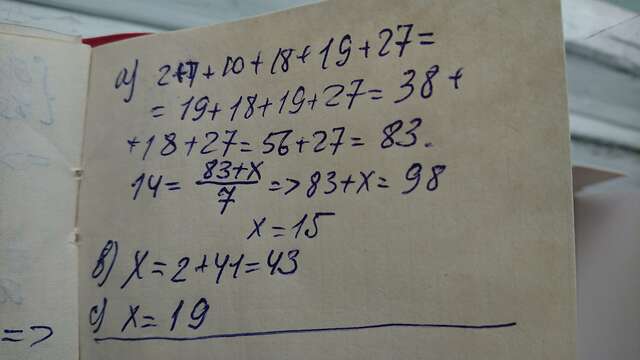 a) 2+7+10+18+19+27=
=19+18+19+27=38+
+18+27=56+27=83.
14= 83+x/7 =>83+x=98
x=15
b) x=2+41=43
c) x=19
=>